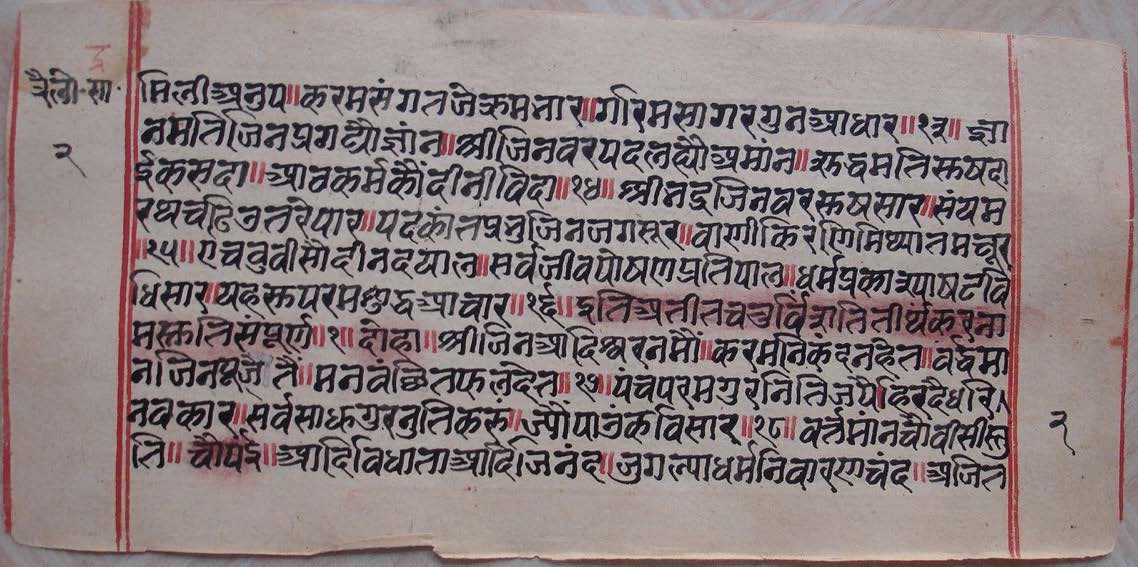 त्रैलो.सा.
२
मिलीअनुप॥ करमसंगतजेक्रमनार॥ गरिमसागरगुनआधार॥१३॥ ज्ञा
नमर्तिजिनप्रगट्यौज्ञांन॥ श्रीजिनवरपदलह्यौप्रमांन॥
ईकसदा॥ आठकर्मकौंदीनीविदा॥१४॥ श्रीजिनवर संयम
रथचढि पार॥ जिनजगसूर॥ वाणीकिरणिमिथ्यातमचूर
॥१५॥ एचउवीसौदीनदयाल॥ सर्वजीवपोषणप्रतिपाल॥ धर्मप्रकाश
धिसार॥ परमशुद्धआचार॥१६॥ इतिअतीतचतुर्विंशतितीर्थंकरना
मस्तुतिसंपूर्ण॥१॥ दोहा॥ श्रीजिनआदिश्वरनमौं॥ करमनिकंदनहेत॥ वर्द्धमा
नजिनपूजतैं॥ मनवंछितफलदेत॥१७॥ पंचपरमगुरनितिजपौं हिरदैधरि
नवकार॥ सर्वसाधगुरनुतिकरूं॥ ज्यौंपाउंकविसार॥१८॥ वर्तमांनचौवीसीस्तु
ति॥ चौपई॥ आदिविधाताआदिजिनंद॥ जुगल्याधर्मनिवारणचंद॥ अजित
२